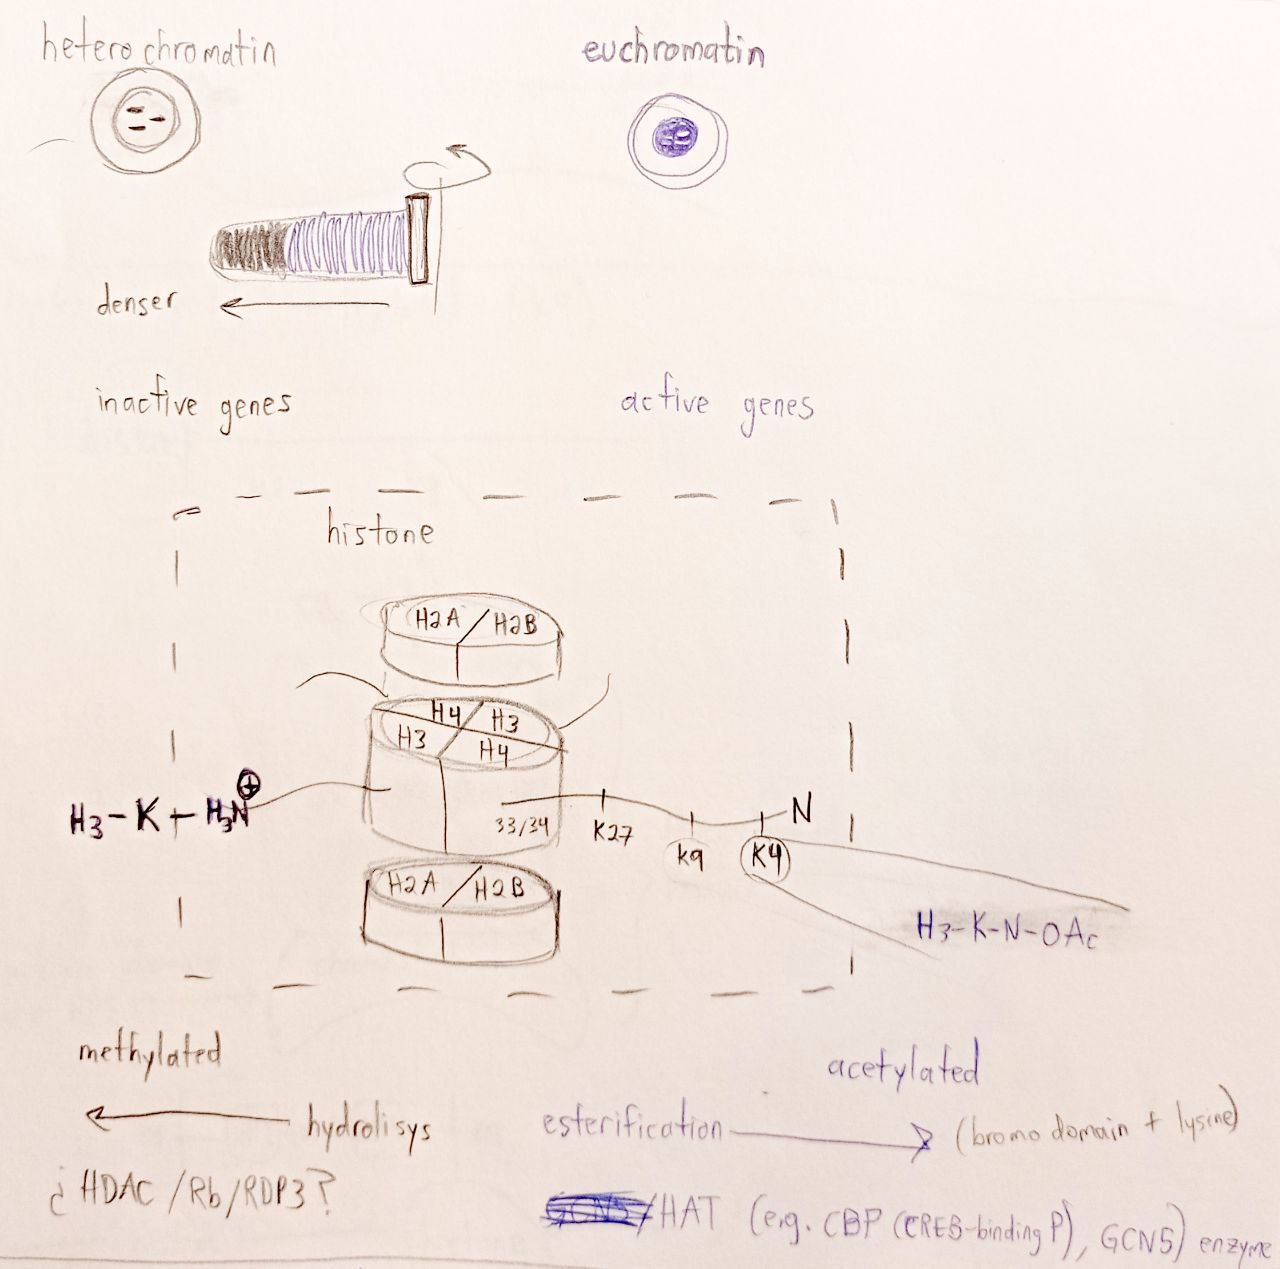 heterochromatin
euchromatin
denser
inactive genes
active genes
histone
H2A / H2B
H4 H3
H3 H4
H3-K + H3N⊕
33/34
K27
K9
K4
N
H2A / H2B
H3-K-N-OAc
methylated
acetylated
hydrolisys
esterification
(bromo domain + lysine)
¿HDAC/Rb/RDP3?
GCN5/HAT (e.g. CBP (CREB-binding P), GCN5) enzyme